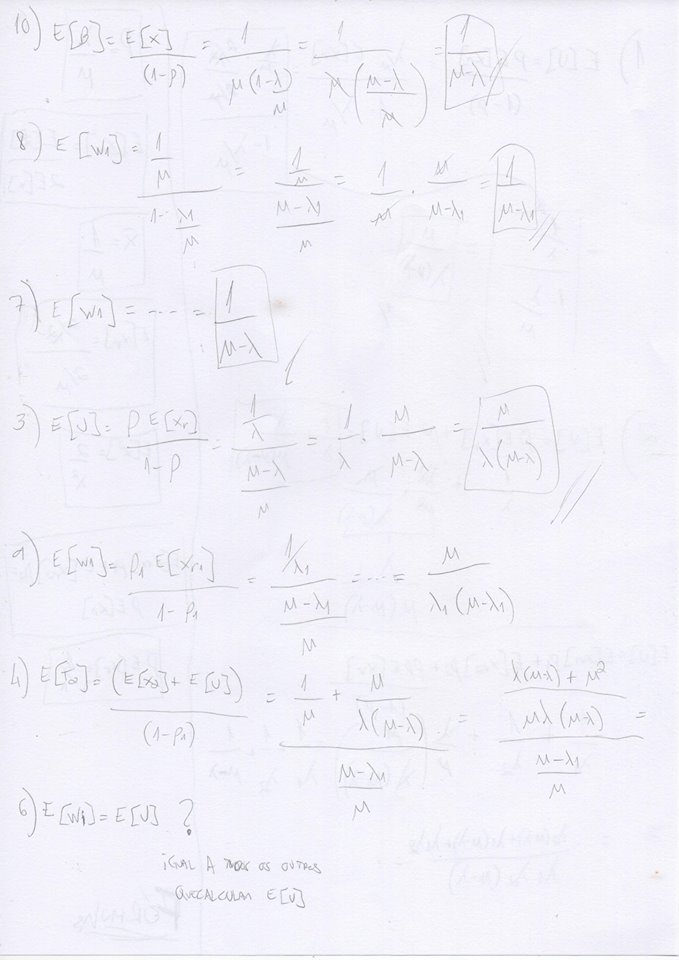 10) E[B] = E[X] / (1-ρ) = 1 / μ(1-λ/μ) = 1 / μ((μ-λ)/μ) = 1 / (μ-λ)
8) E[W1] = (1/μ) / (1-λ1/μ) = (1/μ) / ((μ-λ1)/μ) = 1/μ · μ/(μ-λ1) = 1 / (μ-λ1)
7) E[W1] = ---- = 1 / (μ-λ)
3) E[U] = ρ E[Xr] / (1-ρ) = (1/λ) / ((μ-λ)/μ) = 1/λ · μ/(μ-λ) = μ / λ(μ-λ)
9) E[W1] = ρ1 E[Xr1] / (1-ρ1) = (1/λ1) / ((μ-λ1)/μ) = ---- = μ / λ1(μ-λ1)
4) E[T2] = (E[X2] + E[U]) / (1-ρ1) = (1/μ + μ/λ(μ-λ)) / ((μ-λ1)/μ) = ((λ(μ-λ) + μ²) / μλ(μ-λ)) / ((μ-λ1)/μ) =
6) E[Wi] = E[U] ?
iGUAL A TODOS OS OUTROS
QUE CALCULAM E[U]